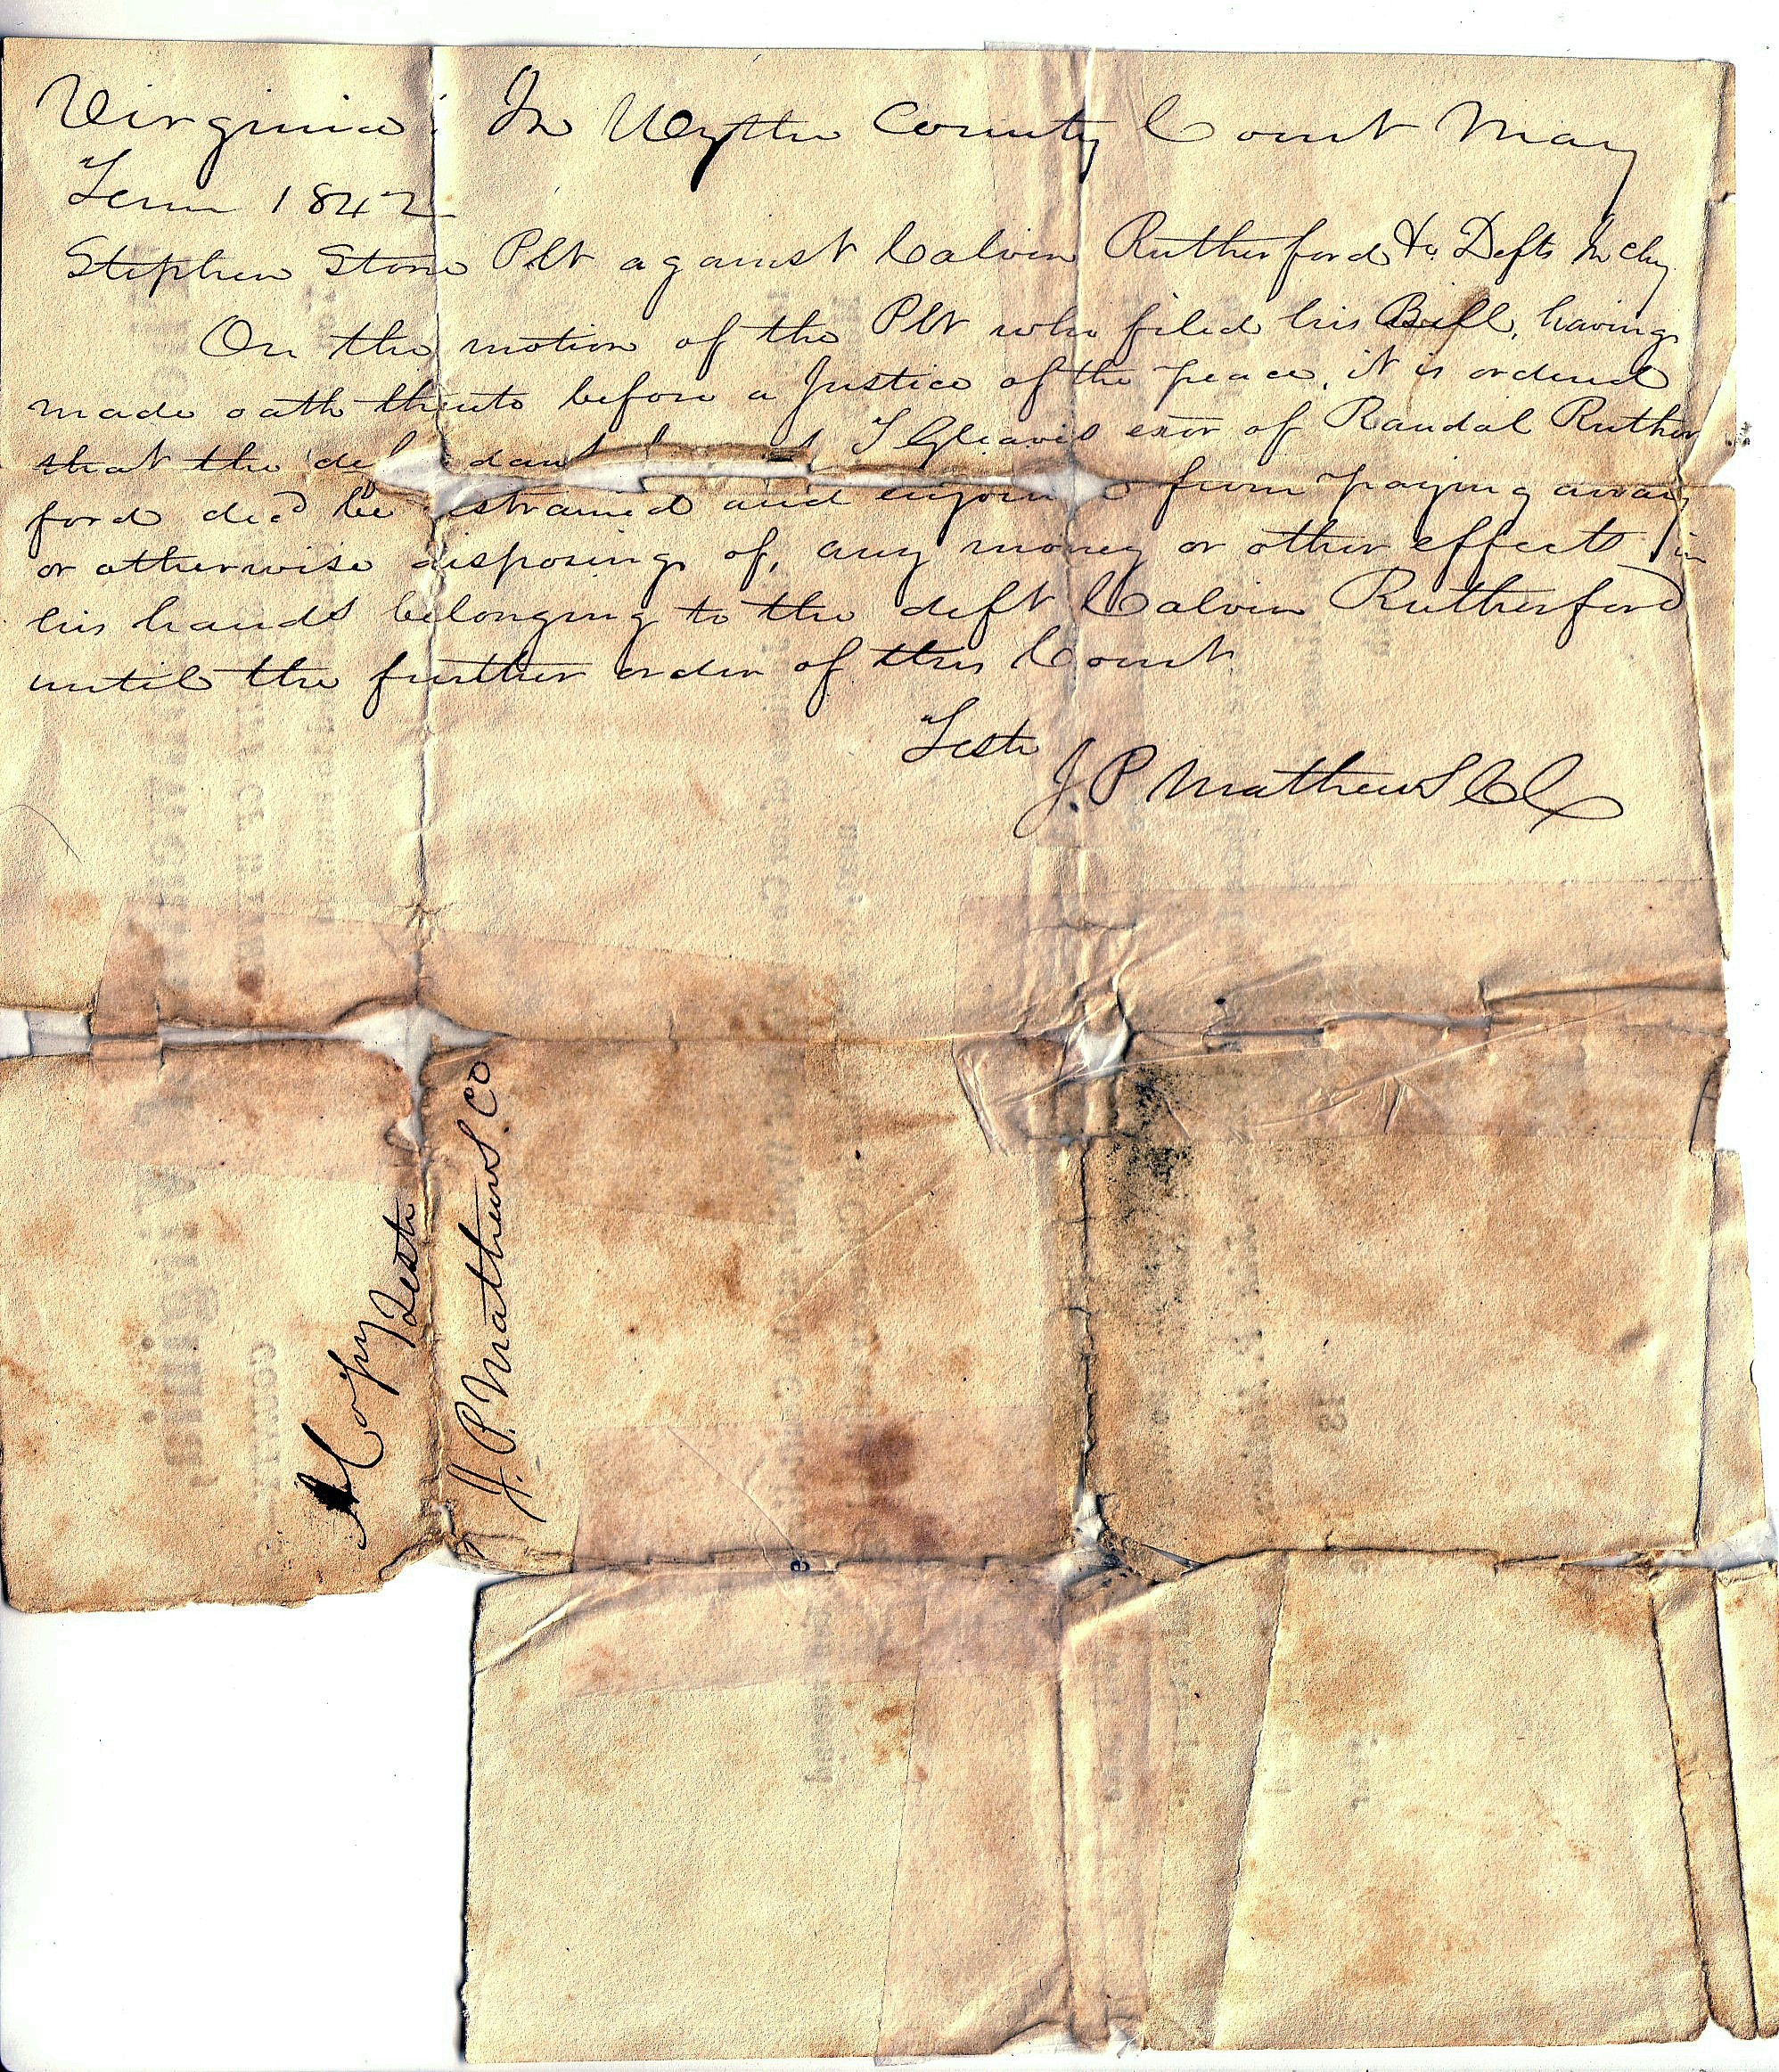 Virginia: In Wythe County Court May
Term 1842
Stephen Stone Plt against Calvin Rutherford &c Defts In chy
On the motion of the Plt who filed his Bill, having
made oath thereto before a Justice of the peace, it is ordered
that the defendant T Gleaves exor of Randal Ruther
ford decd be restrained and enjoined from paying away
or otherwise disposing of, any money or other effects in
his hands belonging to the deft Calvin Rutherford
until the further order of this Court
Teste
J. P Mathews Clk
A Copy Teste
J. P. Mathews CO